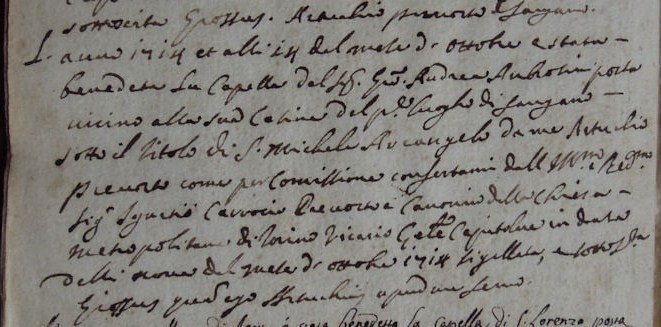 sottoscritta Grossus. Prevosto di Sangano.
L'anno 1714 et alli 14 del mese di ottobre è stata
benedeta La Capella del Sig. Gio. Andrea Ambrosin posta
vicino alla sua Casina del pnte luogho di Sangano
sotto il titolo di S. Michele Arcangelo da me
Prevosto come per Comissione consertami dall Illmo e Redmo
Sigr Ignatio Carrocio Prevosto e Canonico della Chiesa
metropolitana di Torino Vicario Gnle Capitolare in data
delli nove del mese di ottobre 1714 sigillata, e sottosta
Grossus
è stata benedetta la capella di S. Lorenzo posta